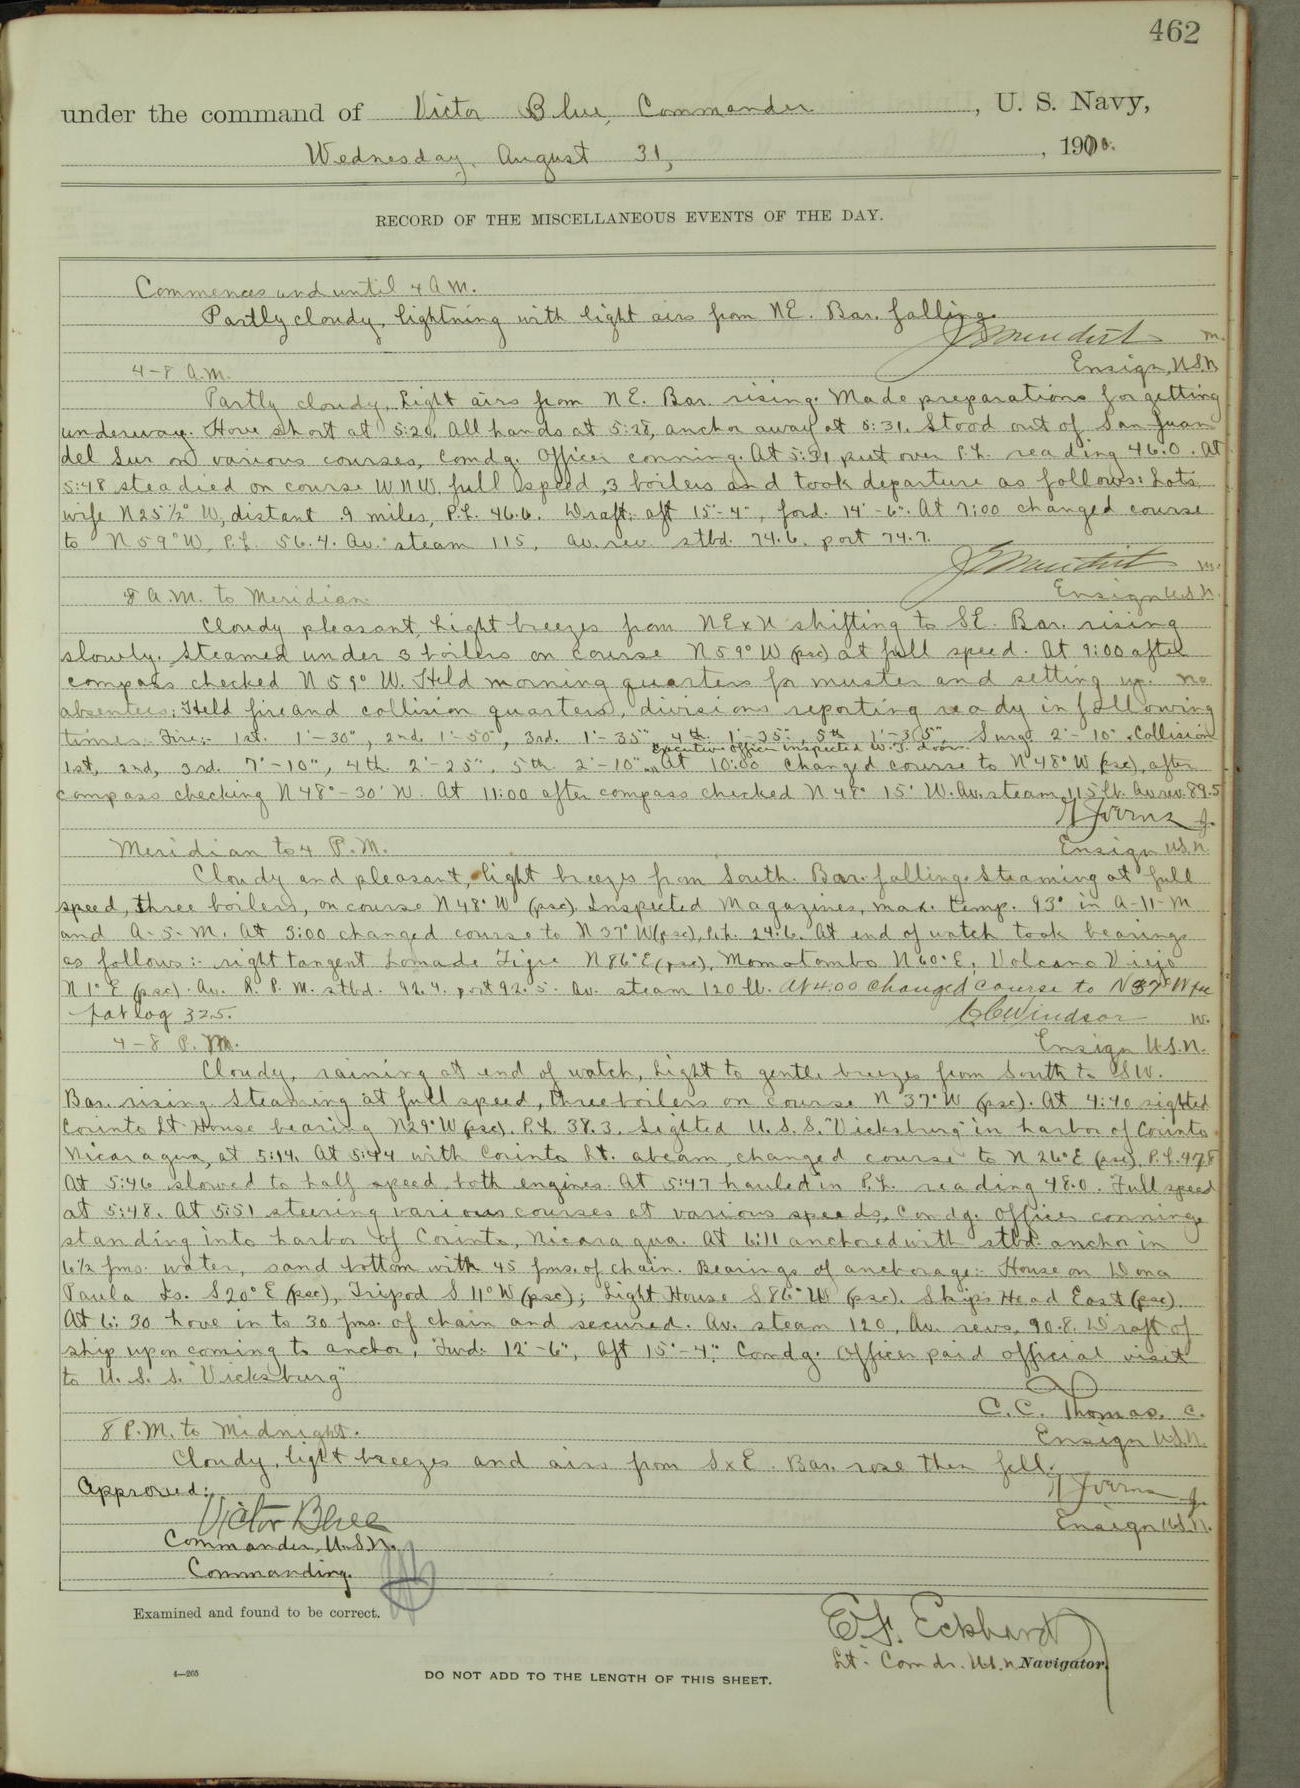 462
under the command of Victor Blue, Commander, U. S. Navy,
Wednesday, August 31, 1910.
RECORD OF THE MISCELLANEOUS EVENTS OF THE DAY.
Commences and until 4 A.M.
Partly cloudy, lightning with light airs from NE. Bar. falling.
Ensign, U.S.N.
4-8 A.M.
Partly cloudy, Light airs from NE. Bar. rising. Made preparations for getting
underway. Hove short at 5:20, All hands at 5:28, anchor away at 5:31. Stood out of San Juan
del Sur on various courses, Comdg. Officer conning. At 5:31 put over P.L. reading 46.0. At
5:48 steadied on course WNW. full speed, 3 boilers and took departure as follows: Lots
wife N25½° W, distant .9 miles, P.L. 46.6. Draft: aft 15'-4", ford. 14'-6". At 7:00 changed course
to N59°W, P.L. 56.4. Av. steam 115, av. rev. stbd. 74.6, port 74.7.
Ensign U.S.N.
8 A.M. to Meridian
Cloudy pleasant, Light breezes from NExN shifting to SE. Bar. rising
slowly. Steamed under 3 boilers on course N59°W (psc) at full speed. At 9:00 after
compass checked N59° W. Held morning quarters for muster and setting up. no
absentees; Held fire and collision quarters, divisions reporting ready in following
times: Fire:- 1st. 1'-30", 2nd. 1'-50", 3rd. 1'-35", 4th. 1'-35", 5th 1'-35" Surg. 2'-10". Collision
Executive officer inspected W.T. doors.
1st, 2nd, 3rd. 7'-10", 4th. 2'-25", 5th. 2'-10". At 10:00 changed course to N48°W (psc), after
compass checking N48°-30' W. At 11:00 after compass checked N48° 15' W. Av. steam 115 lb. Av. rev. 89.5
Ensign U.S.N.
Meridian to 4 P.M.
Cloudy and pleasant, light breezes from South. Bar. falling. Steaming at full
speed, three boilers, on course N48°W (psc). Inspected Magazines, max. temp. 93° in A-11-M
and A-5-M. At 3:00 changed course to N37°W (psc), 24.6. At end of watch took bearings
as follows:- right tangent N86°E (psc), Momotombo N60°E, Volcano Viejo
N1°E (psc). Av. R.P.M. stbd. 92.4, port 92.5. Av. steam 120 lb. At 4.00 changed course to N37°W psc
Pat log 32.5.
C C Windsor
Ensign U.S.N.
4-8 P.M.
Cloudy, raining at end of watch, Light to gentle breezes from South to SW.
Bar. rising. Steaming at full speed, three boilers on course N37°W (psc). At 4:40 sighted
Corinto Lt. House bearing N29°W (psc). P.L. 38.3. Sighted U.S.S. "Vicksburg" in harbor of Corinto
Nicaragua, at 5:14. At 5:44 with Corinto Lt. abeam, changed course to N26°E (psc). P.L. 47.8
At 5:46 slowed to half speed both engines. At 5:47 hauled in P.L. reading 48.0. Full speed
at 5:48. At 5:51 steering various courses at various speeds, Comdg. Officer conning
standing into harbor of Corinto, Nicaragua. At 6:11 anchored with stbd. anchor in
6½ fms. water, sand bottom with 45 fms. of chain. Bearings of anchorage:- House on Dona
Paula Is. S20°E (psc), Tripod S11°W (psc); Light House S86°W (psc). Ship's Head East (psc).
At 6:30 hove in to 30 fms. of chain and secured. Av. steam 120, Av. revs. 90.8. Draft of
ship upon coming to anchor, Fwd: 12'-6", aft 15'-4". Comdg. Officer paid official visit
to U.S.S. "Vicksburg"
C.C. Thomas.
Ensign U.S.N.
8 P.M. to Midnight.
Cloudy, light breezes and airs from SxE. Bar. rose then fell.
Approved:
Victor Blue
Ensign U.S.N.
Commander, U.S.N.
Commanding.
Examined and found to be correct.
E.F. Eckhardt
Lt. Comdr. U.S.N. Navigator.
4—265
DO NOT ADD TO THE LENGTH OF THIS SHEET.